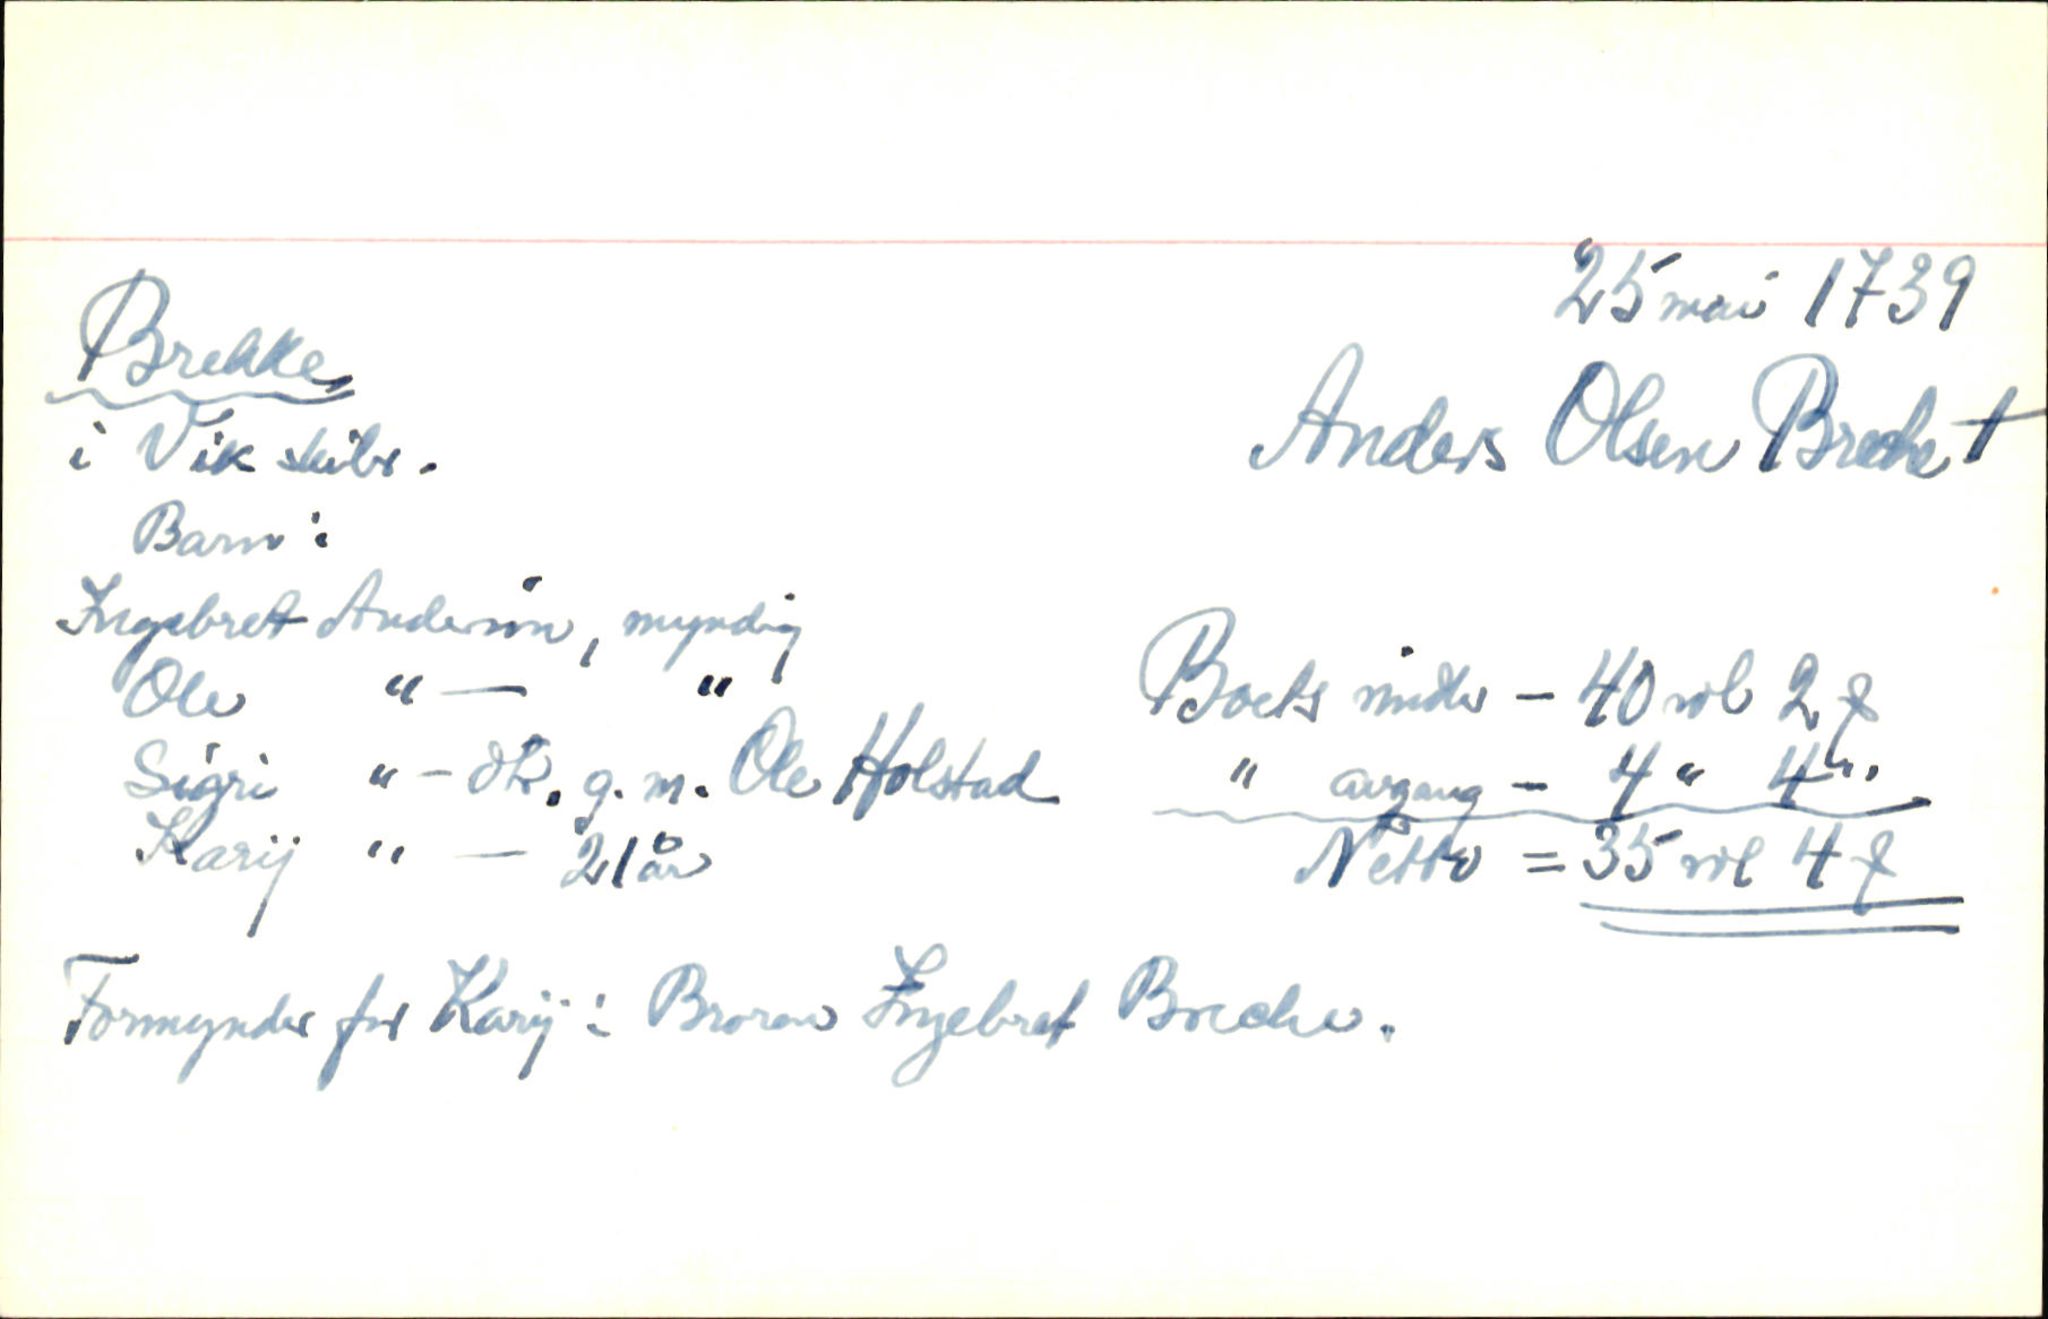 25 mai 1739
Brekke
i Vik skibr.
Anders Olsen Breche †
Barn:
Ingebret Andersen, myndig
Ole " — "
Sigri " — dtr. g. m. Ole Holstad
Karij " — 21 år
Boets midler — 40 rdl 2 ƒ
" avgang — 4 " 4 "
Netto = 35 rdl 4 ƒ
Formynder for Karij: Broren Ingebret Breche.